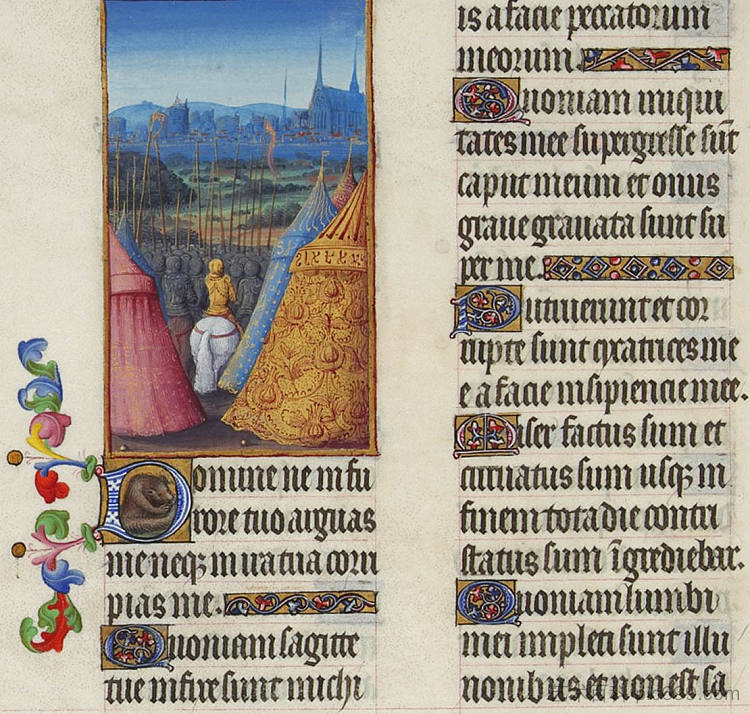 Domine ne in fu
rore tuo arguas
me neq; in ira tua corri
pias me.
Quoniam sagitte
tue infixe sunt michi
is a facie peccatorum
meorum.
Quoniam iniqui
tates mee supergresse sūt
caput meum et onus
graue grauata sunt su
per me.
Putruerunt et cor
rupte sunt cicatrices me
e a facie insipiencie mee.
Miser factus sum et
curuatus sum usq; in
finem tota die contri
status sum īgrediebar.
Quoniam lumbi
mei impleti sunt illu
nonibus et non est sa